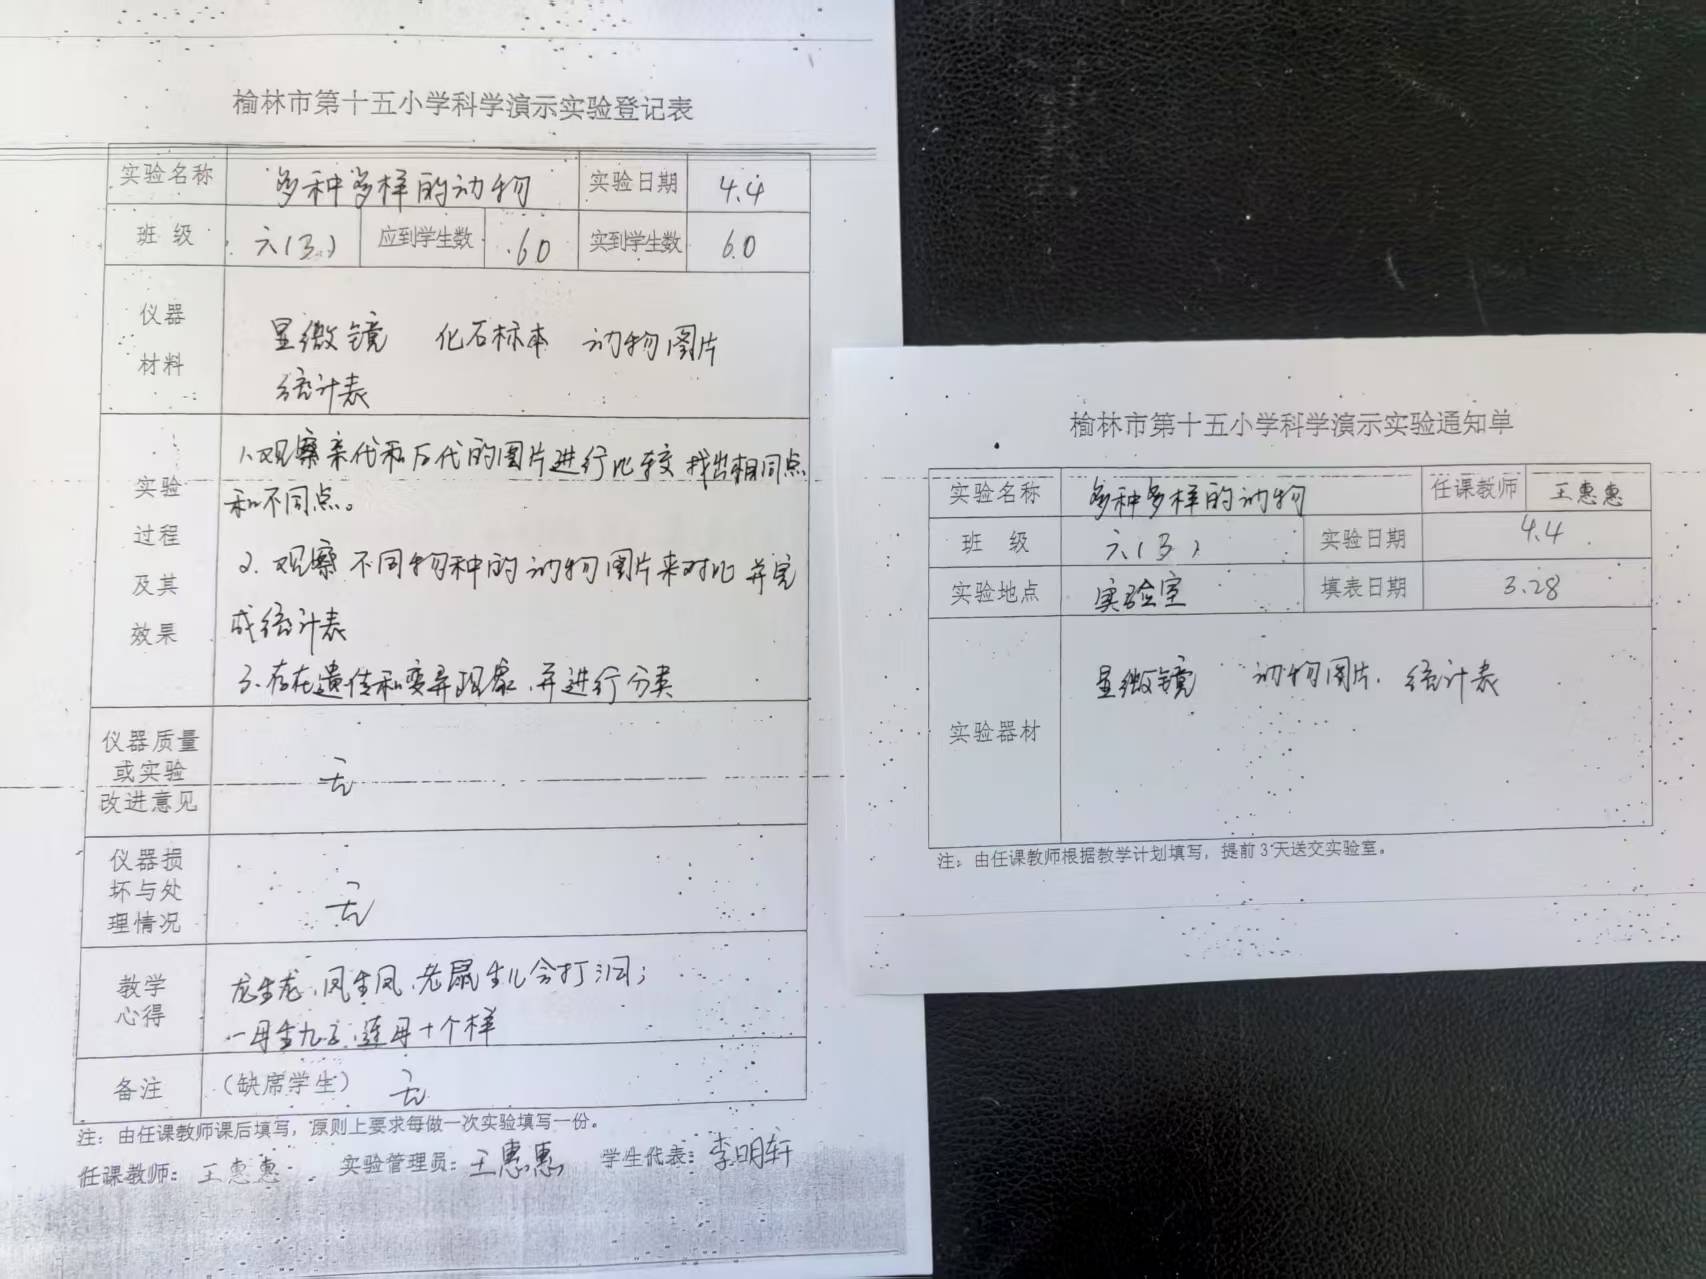 榆林市第十五小学科学演示实验登记表
实验名称 多种多样的动物 实验日期 4.4
班 级 六(3) 应到学生数 60 实到学生数 60
仪器
材料
显微镜 化石标本 动物图片
统计表
实验
过程
及其
效果
1.观察亲代和后代的图片进行比较 找出相同点
和不同点。
2.观察不同物种的动物图片来对比 并完
成统计表
3.存在遗传和变异现象,并进行分类
仪器质量
或实验
改进意见
无
仪器损
坏与处
理情况
无
教学
心得
龙生龙,凤生凤,老鼠生儿会打洞;
一母生九子,连母十个样
备注 (缺席学生) 无
注：由任课教师课后填写，原则上要求每做一次实验填写一份。
任课教师：王惠惠 实验管理员：王惠惠 学生代表：李明轩
榆林市第十五小学科学演示实验通知单
实验名称 多种多样的动物 任课教师 王惠惠
班 级 六(3) 实验日期 4.4
实验地点 实验室 填表日期 3.28
实验器材 显微镜 动物图片. 统计表
注：由任课教师根据教学计划填写，提前3天送交实验室。